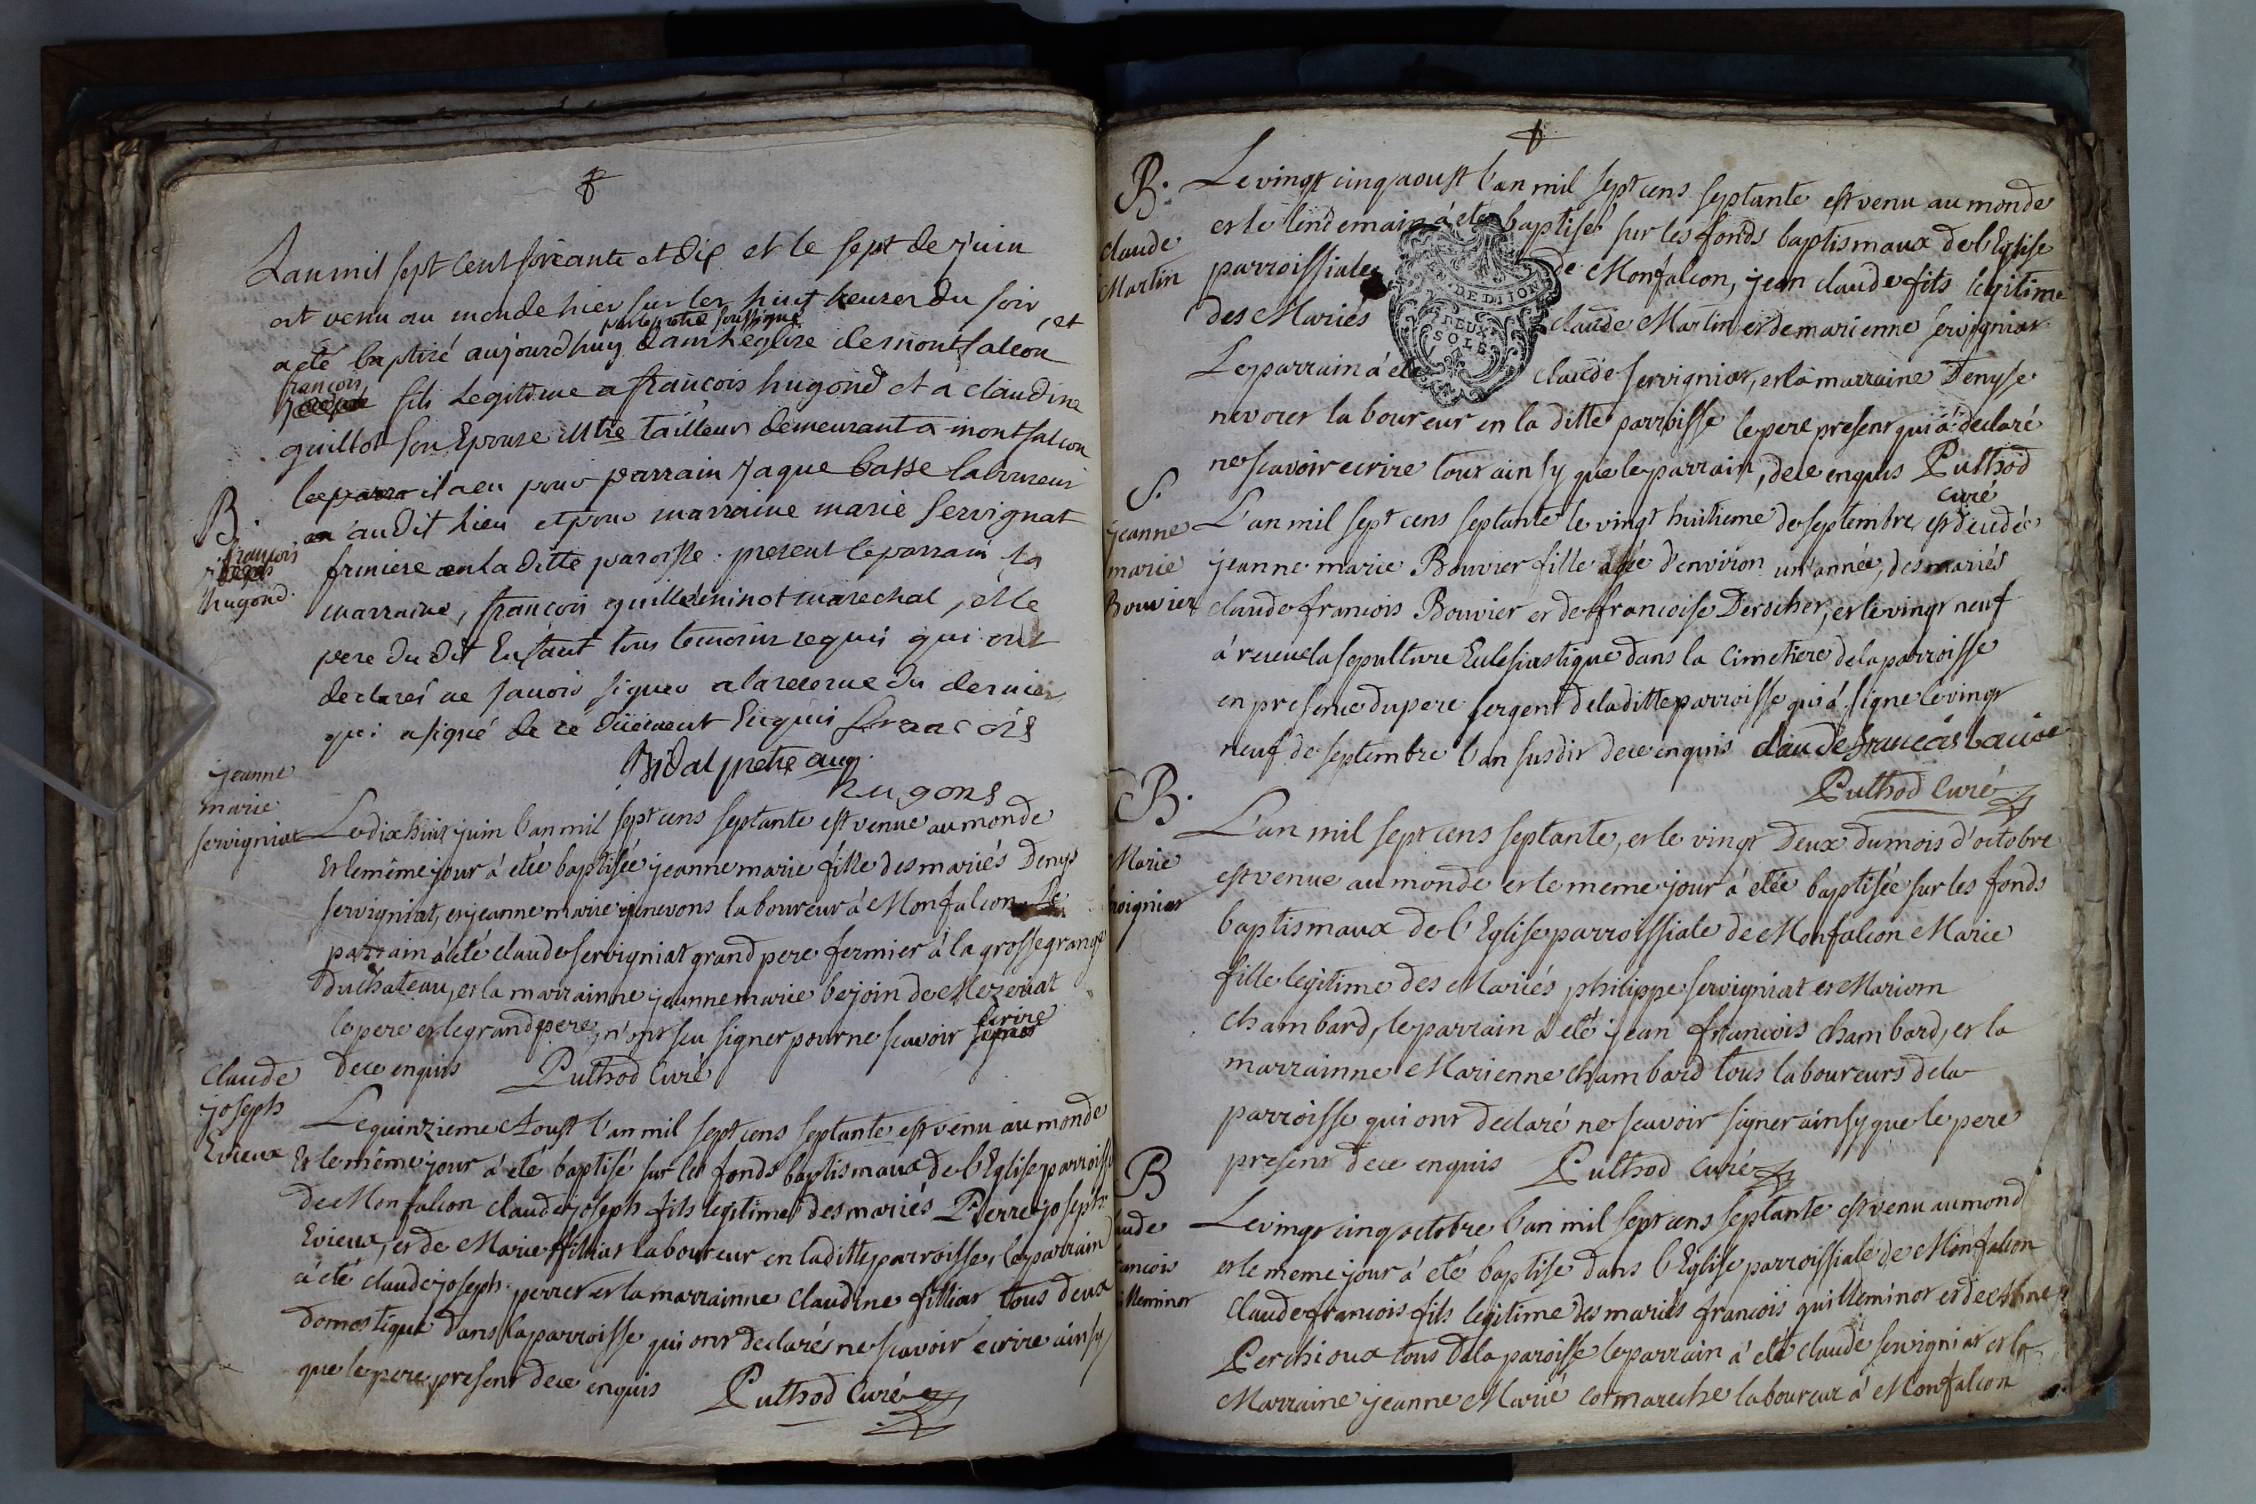 L'an mil sept cent soixante et dix et le sept de juin
est venu au monde hier sur les huit heures du soir, et
par le prêtre soussigné
a eté baptisé aujourdhuy dans l'eglise de montfalcon
françois
fils Legitime a françois hugond et à claudine
guillot son Epouse Mtre tailleur demeurant a montfalcon
il a eu pour parrain jaque basse laboureur
B.
audit lieu et pour marraine marie Servignat
françois
hugond.
friniere en la ditte paroisse. present le parrain la
marraine, françois guilleminot marechal, et le
pere du dit Enfant tous temoins requis qui ont
declarés ne savoir signer a la reserve du dernier
qui a signé de ce düement Enquis françois
Vidal pretre
hugons
jeanne
marie
servigniat
Le dix huit juin l'an mil sept cens septante est venue au monde
Et le même jour à etée baptisée jeanne marie fille des mariés Denys
servigniat, et jeanne marie genevons laboureur à Monfalcon Le
parrain à été claude servigniat grand pere fermier à la grosse grange
du château, et la marrainne jeanne marie bejoin de Mezeriat
le pere et le grand pere, n'ont sçu signer pour ne scavoir ecrire
de ce enquis Puthod Curé
Claude
joseph
Evieux
Le quinzieme Aoust l'an mil sept cens septante est venu au monde
Et le même jour à été baptisé sur les fonds baptismaux de l'Eglise parroiss
de Monfalcon claude joseph fils legitime des mariés Pierre joseph
Evieux, et de Marie filliat laboureur en la ditte parroisse, le parrain
à été claude joseph perret et la marrainne Claudine filliat tous deux
domestique dans la parroisse qui ont declarés ne scavoir ecrire ainsy
que le pere present de ce enquis Puthod Curé
B.
claude
Martin
Le vingt cinq aoust l'an mil sept cens septante est venu au monde
et le lendemain à eté baptisé sur les fonds baptismaux de l'Eglise
parroissiale de Monfalcon, jean claude fils legitime
des Mariés claude Martin et de marienne servigniat
DE DIJON
DEUX
SOLS
Le parrain à eté claude servigniat, et la marraine Denyse
nevoret laboureur en la ditte parroisse le pere present qui à declaré
ne scavoir ecrire tout ainsy que le parrain, de ce enquis Puthod
curé
S.
jeanne
marie
Bouvier
L'an mil sept cens septante le vingt huitieme de septembre est decedée
jeanne marie Bouvier fille agée d'environ un année, des mariés
claude francois Bouvier et de francoise Derocher, et le vingt neuf
à recue la sepulture Eclesiastique dans la Cimetiere de la parroisse
en presence du pere sergent de la ditte parroisse qui à signe le vingt
neuf de septembre l'an susdit de ce enquis claude francois bavier
Puthod Curé
B.
Marie
Servigniat
L'an mil sept cens septante, et le vingt deux du mois d'octobre
est venue au monde et le meme jour à etée baptisée sur les fonds
baptismaux de l'Eglise parroissiale de Monfalcon Marie
fille legitime des Mariés philippe servigniat et Mariom
Chambard, le parrain à eté jean francois Chambard, et la
marrainne Marienne Chambard tous laboureurs de la
parroisse qui ont declaré ne scavoir signer ainsy que le pere
present de ce enquis Puthod Curé
B
aude
ancois
illeminot
Le vingt cinq octobre l'an mil sept cens septante est venu au mond
et le meme jour à eté baptise dans l'Eglise parroissiale de Monfalcon
Claude francois fils legitime des mariés francois guilleminot et de Anne
Perchioux tous de la paroisse le parrain à eté claude servigniat et la
Marraine jeanne Marie cormareche laboureur à Monfalcon